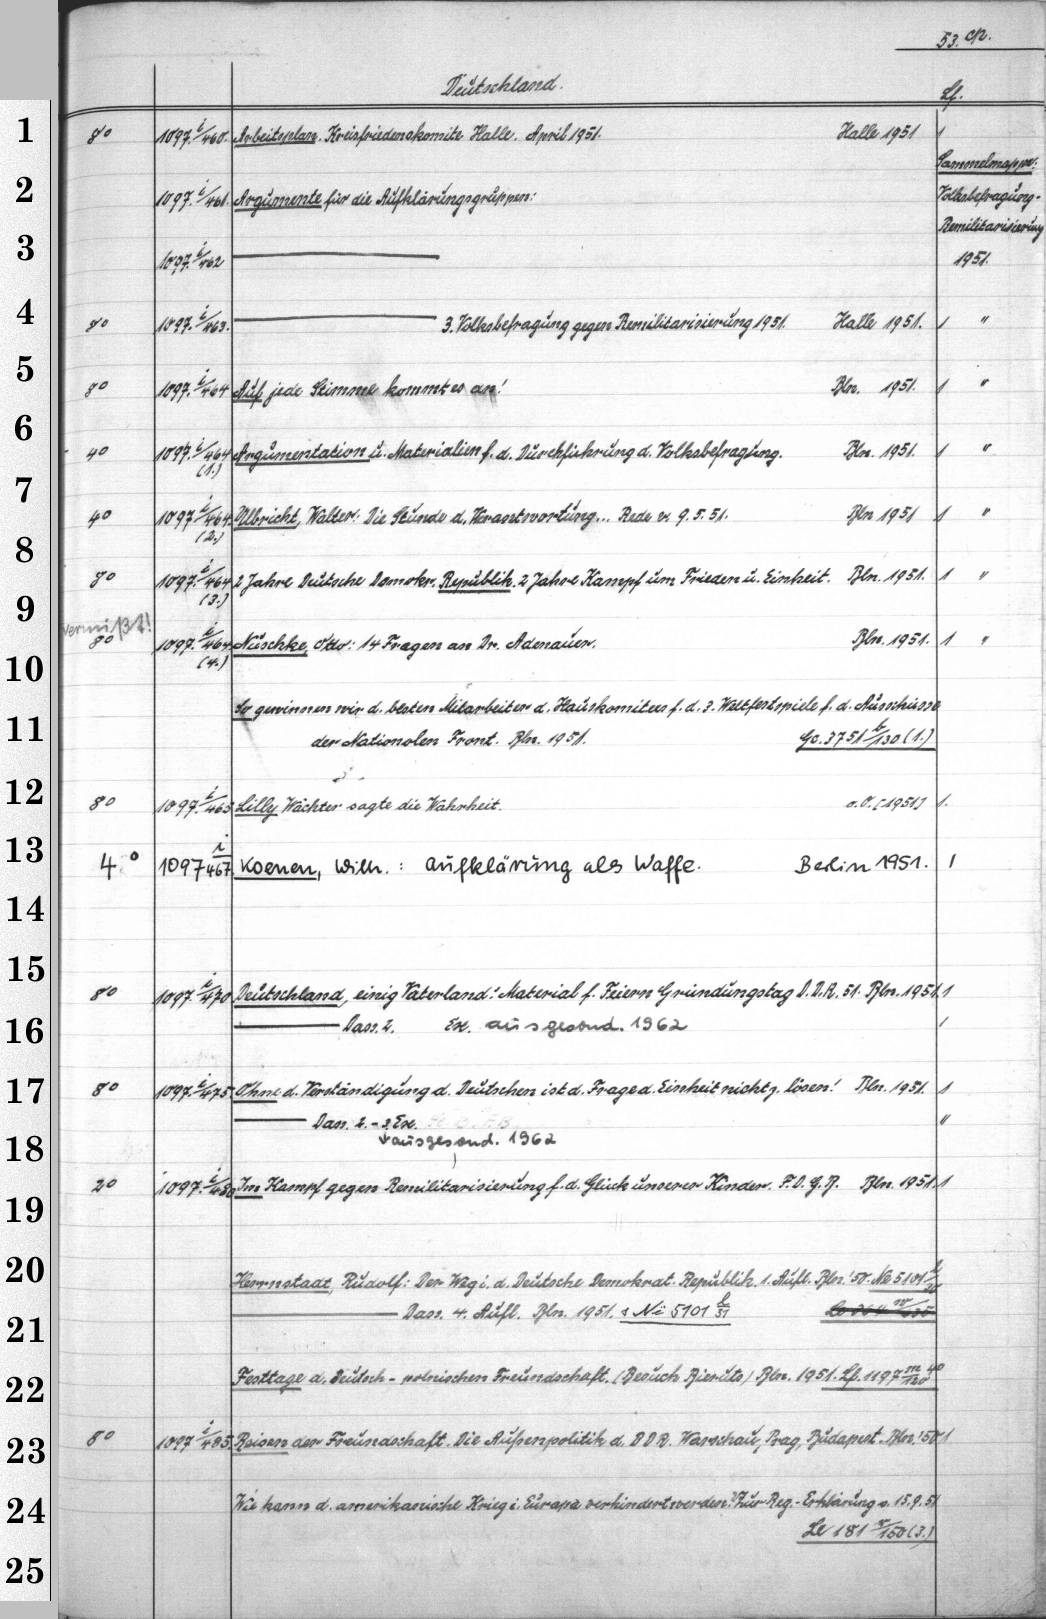 53. cp.
Deutschland. Lf.
1 8° 1097. i/460. Arbeitsplan. Kreisfriedenskomite Halle. April 1951. Halle 1951 1
Sammelmappe:
2 1097. i/461. Argumente für die Aufklärungsgruppen: Volksbefragung-
Remilitarisierung
3 1097. i/462 ——— 1951.
4 8° 1097. i/463. ——— 3. Volksbefragung gegen Remilitarisierung 1951. Halle 1951. 1 "
5 8° 1097. i/464 Auf jede Stimme kommt es an! Bln. 1951. 1 "
6
4° 1097. i/464 (1.) Argumentation u. Materialien f. d. Durchführung d. Volksbefragung. Bln. 1951. 1 "
7 4° 1097 i/464. (2.) Ulbricht, Walter: Die Stunde d. Verantwortung... Rede v. 9. 5. 51. Bln 1951 1 "
8 8° 1097. i/464 (3.) 2 Jahre Deutsche Demokr. Republik. 2 Jahre Kampf um Frieden u. Einheit. Bln. 1951. 1 "
9 vermißt!
8° 1097. i/464 (4.) Nuschke, Otto: 14 Fragen an Dr. Adenauer. Bln. 1951. 1 "
10
So gewinnen wir d. besten Mitarbeiter d. Hauskomitees f. d. 3. Weltfestspiele f. d. Ausschüsse
11 der Nationalen Front. Bln. 1951. Go. 3751 b/130 (1.)
12 8° 1097. i/465 Lilly Wächter sagte die Wahrheit. o. O. [1951] 1.
13 4° 1097 i/467 Koenen, Wilh. : Aufklärung als Waffe. Berlin 1951. 1
14
15 8° 1097. i/470 Deutschland, einig Vaterland! Material f. Feiern Gründungstag D.D.R. 51. Bln. 1951. 1
16 ——— Dass. 2. Ex. ausgesond. 1962 1
17 8° 1097. i/475. Ohne d. Verständigung d. Deutschen ist d. Frage d. Einheit nicht z. lösen! Bln. 1951. 1
——— Dass. 2. - 3. Ex. "
18 ausgesond. 1962
2° 1097. i/480 Im Kampf gegen Remilitarisierung f. d. Glück unserer Kinder. F. D. G. B. Bln. 1951. 1
19
20 Herrnstadt, Rudolf: Der Weg i. d. Deutsche Demokrat. Republik. 1. Aufl. Bln. '50. Ne 5101 l/30
21 ——— Dass. 4. Aufl. Bln. 1951. s Ne 5101 l/31
22 Festtage d. Deutsch-polnischen Freundschaft. (Besuch Bieruts) Bln. 1951. Lf. 1197 m/120 4°
23 8° 1097 i/485. Reisen der Freundschaft. Die Außenpolitik d. DDR. Warschau, Prag, Budapest. Bln. '50 1
24 Wie kann d. amerikanische Krieg i. Europa verhindert werden? Zur Reg.-Erklärung v. 15. 9. 51
Le 181 r/150 (3.)
25